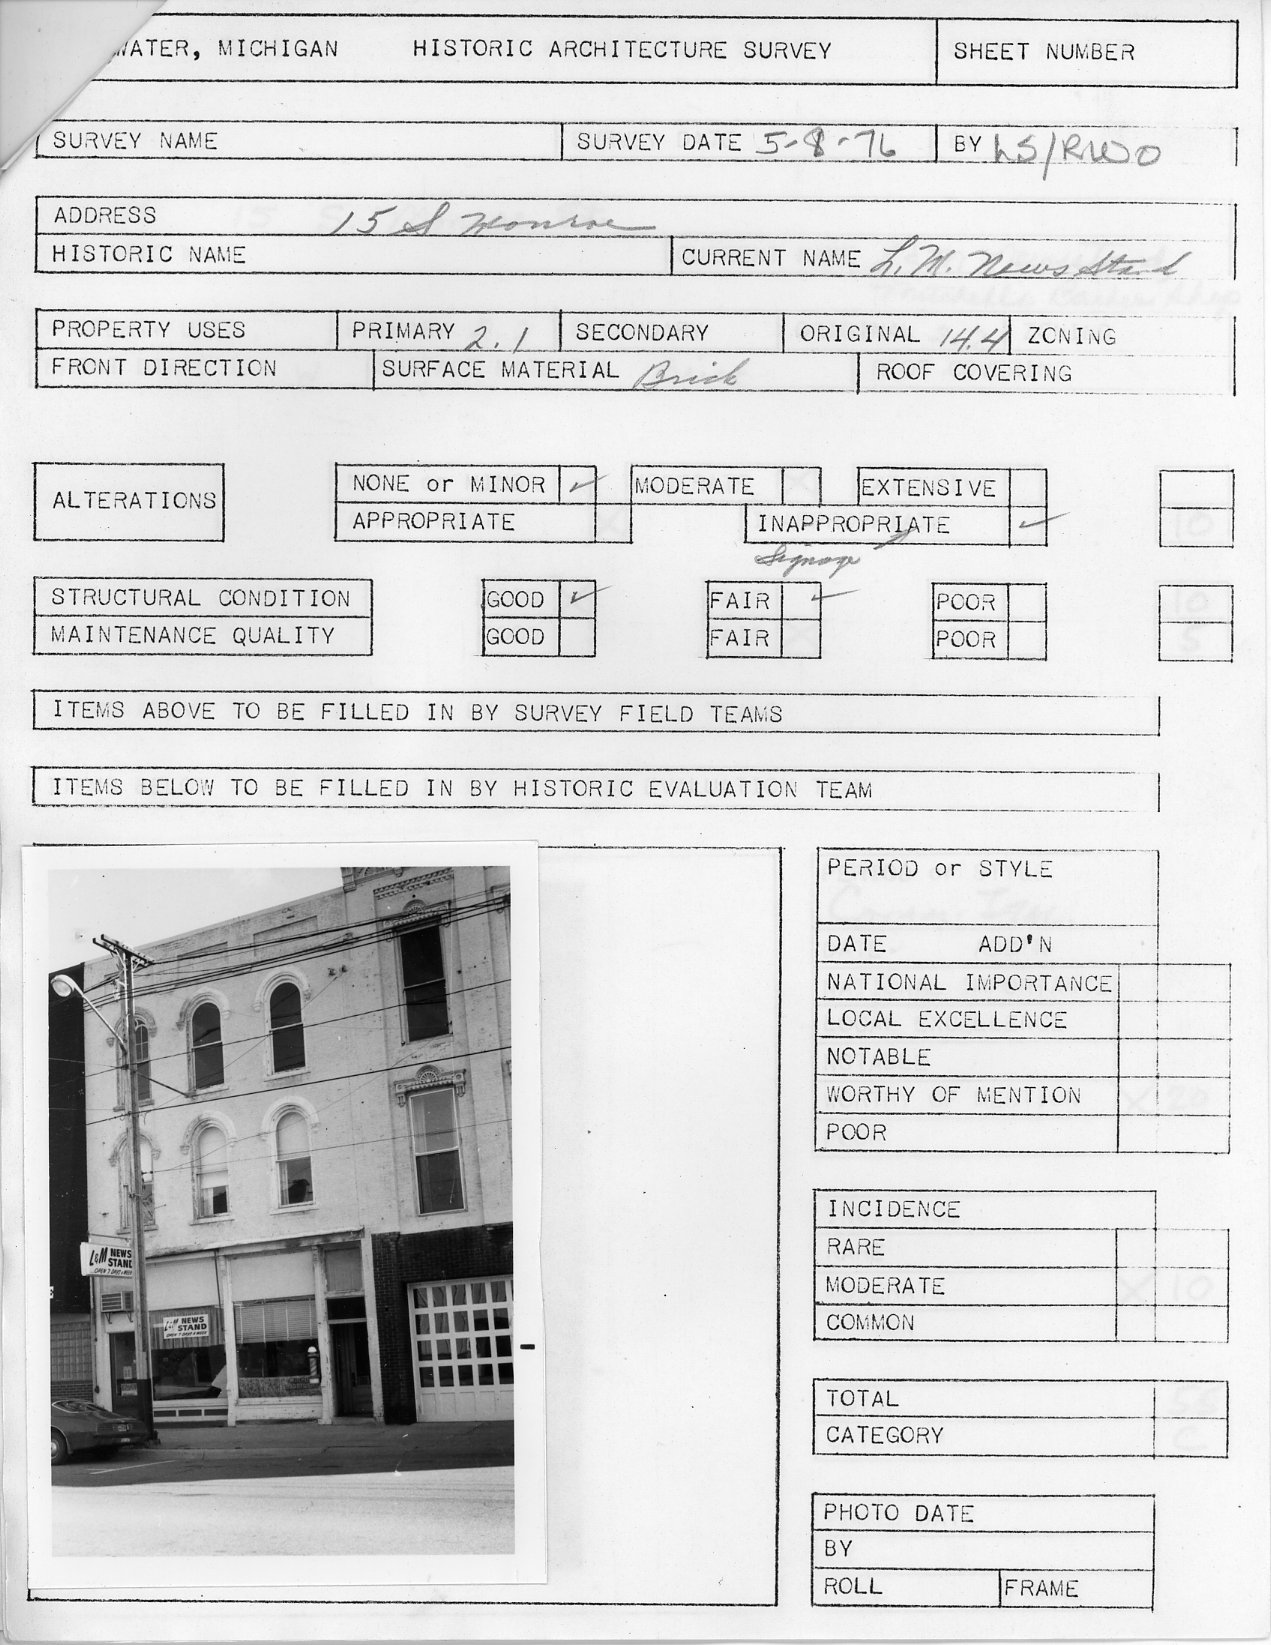 WATER, MICHIGAN HISTORIC ARCHITECTURE SURVEY SHEET NUMBER
SURVEY NAME SURVEY DATE 5-8-76 BY LS/RWO
ADDRESS 15 S Monroe
HISTORIC NAME CURRENT NAME L.M. News Stand
PROPERTY USES PRIMARY 2.1 SECONDARY ORIGINAL 14.4 ZONING
FRONT DIRECTION SURFACE MATERIAL Brick ROOF COVERING
ALTERATIONS NONE or MINOR ✓ MODERATE EXTENSIVE
APPROPRIATE INAPPROPRIATE ✓ 10
Signage
STRUCTURAL CONDITION GOOD ✓ FAIR ✓ POOR 10
MAINTENANCE QUALITY GOOD FAIR POOR 5
ITEMS ABOVE TO BE FILLED IN BY SURVEY FIELD TEAMS
ITEMS BELOW TO BE FILLED IN BY HISTORIC EVALUATION TEAM
L&M NEWS
STAND
OPEN 7 DAYS A WEEK
L&M NEWS
STAND
OPEN 7 DAYS A WEEK
PERIOD or STYLE
DATE ADD'N
NATIONAL IMPORTANCE
LOCAL EXCELLENCE
NOTABLE
WORTHY OF MENTION X 20
POOR
INCIDENCE
RARE
MODERATE X 10
COMMON
TOTAL
CATEGORY C
PHOTO DATE
BY
ROLL FRAME